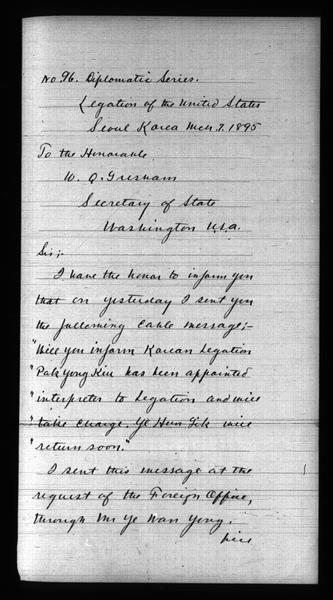 No. 96. Diplomatic Series.
Legation of the United States
Seoul Korea Mch 7. 1895
To the Honorable
W. Q. Gresham
Secretary of State
Washington U.S.A.
Sir;-
I have the honor to inform you
that on yesterday I sent you
the following cable message;-
"Will you inform Korean Legation
"Pak Yong Kiu has been appointed
"interpreter to Legation and will
"take charge. Ye Hun Sik will
"return soon."
I sent this message at the
request of the Foreign Office,
through Mr Ye Wan Yong.